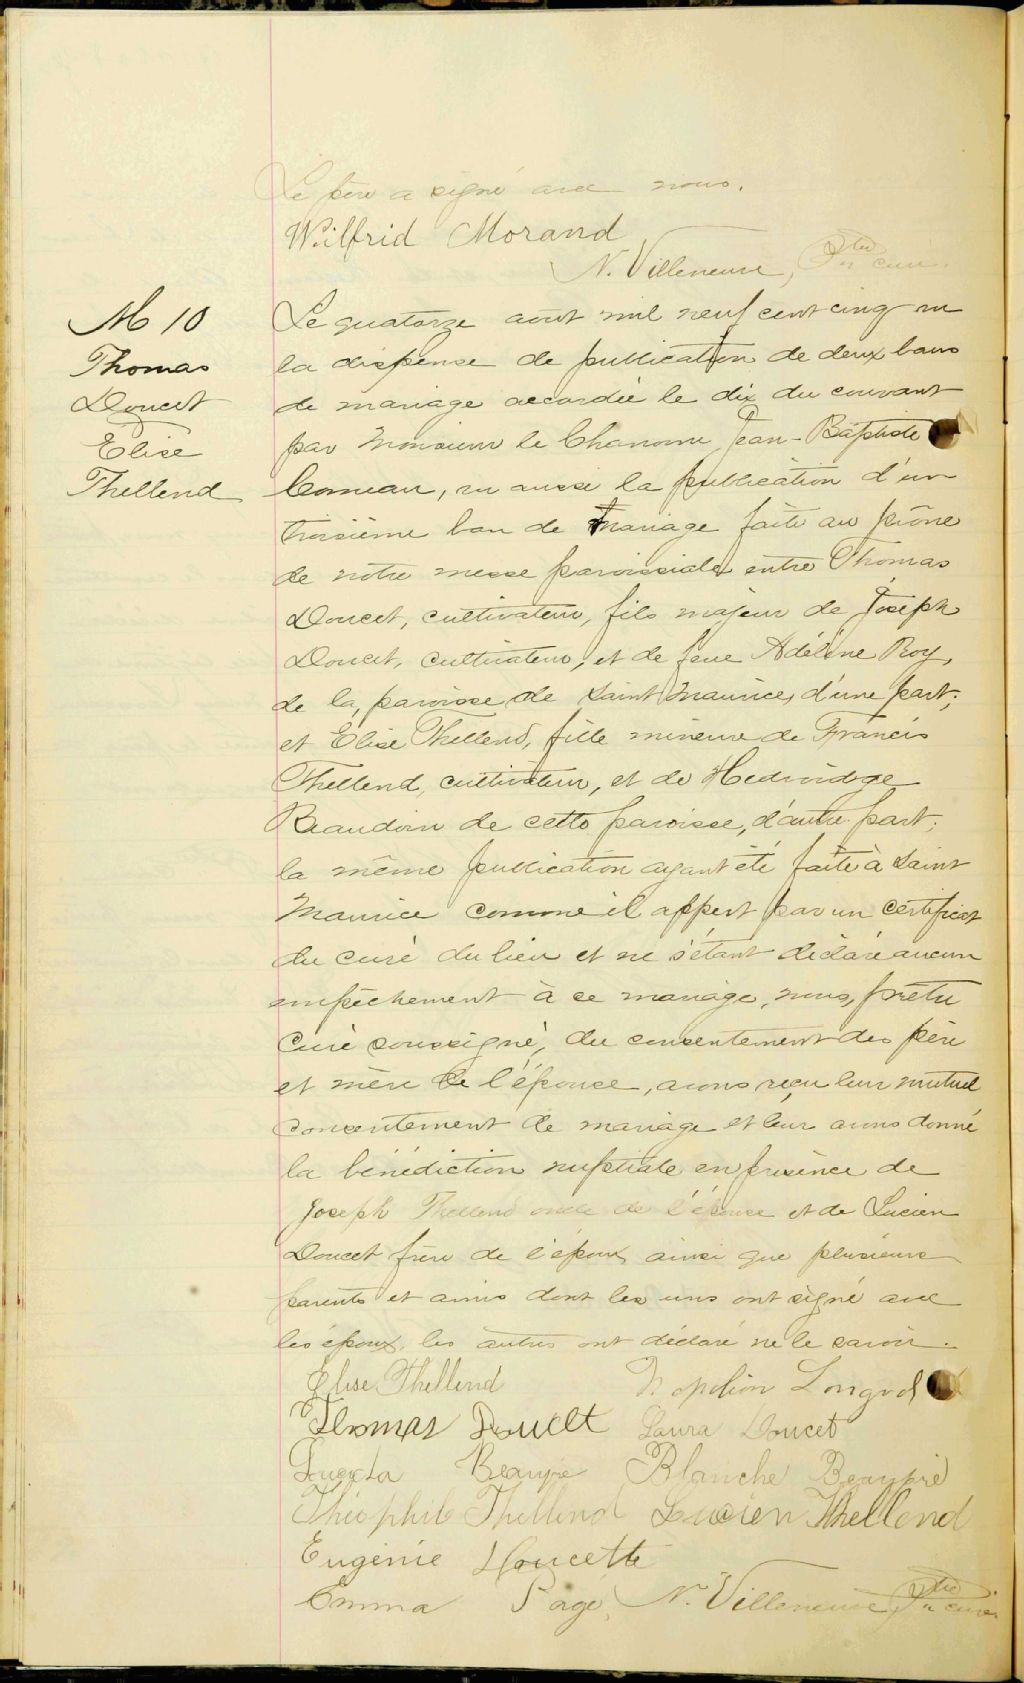 Le père a signé avec nous.
Wilfrid Morand
N. Villeneuve, Ptre curé.
M 10
Thomas
Doucet
Elise
Thellend
Le quatorze août mil neuf cent cinq vu
la dispense de publication de deux bans
de mariage accordée le dix du courant
par Monsieur le Chanoine Jean-Baptiste
Comeau, vu aussi la publication d'un
troisième ban de mariage faite au prône
de notre messe paroissiale, entre Thomas
Doucet, cultivateur, fils majeur de Joseph
Doucet, cultivateur, et de feue Adéline Roy,
de la paroisse de Saint Maurice, d'une part;
et Elise Thellend, fille mineure de Francis
Thellend, cultivateur, et de Hedwidge
Beaudoin de cette paroisse, d'autre part;
la même publication ayant été faite à Saint
Maurice comme il appert par un certificat
du curé du lieu et ne s'étant déclaré aucun
empêchement à ce mariage, nous, prêtre
curé soussigné, du consentement des père
et mère de l'épouse, avons reçu leur mutuel
consentement de mariage et leur avons donné
la bénédiction nuptiale en présence de
Joseph Thellend oncle de l'épouse et de Lucien
Doucet frère de l'époux ainsi que plusieurs
parents et amis dont les uns ont signé avec
les époux, les autres ont déclaré ne le savoir.
Elise Thellend
Thomas Doucet Laura Doucet
Beaupré Blanche Beaupré
Théophile Thellend Lucien Thellend
Eugénie Doucette
Emma Page, N. Villeneuve, Ptre curé.